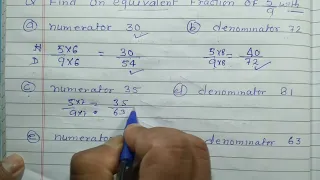 Find An equivalent fraction of 5/9 with
(a) numerator 30 (b) denominator 72
N 5×6 = 30 5×8 = 40
D 9×6 54 9×8 72
(c) numerator 35 (d) denominator 81
5×7 = 35
9×7 = 63
(e) numerator denominator 63